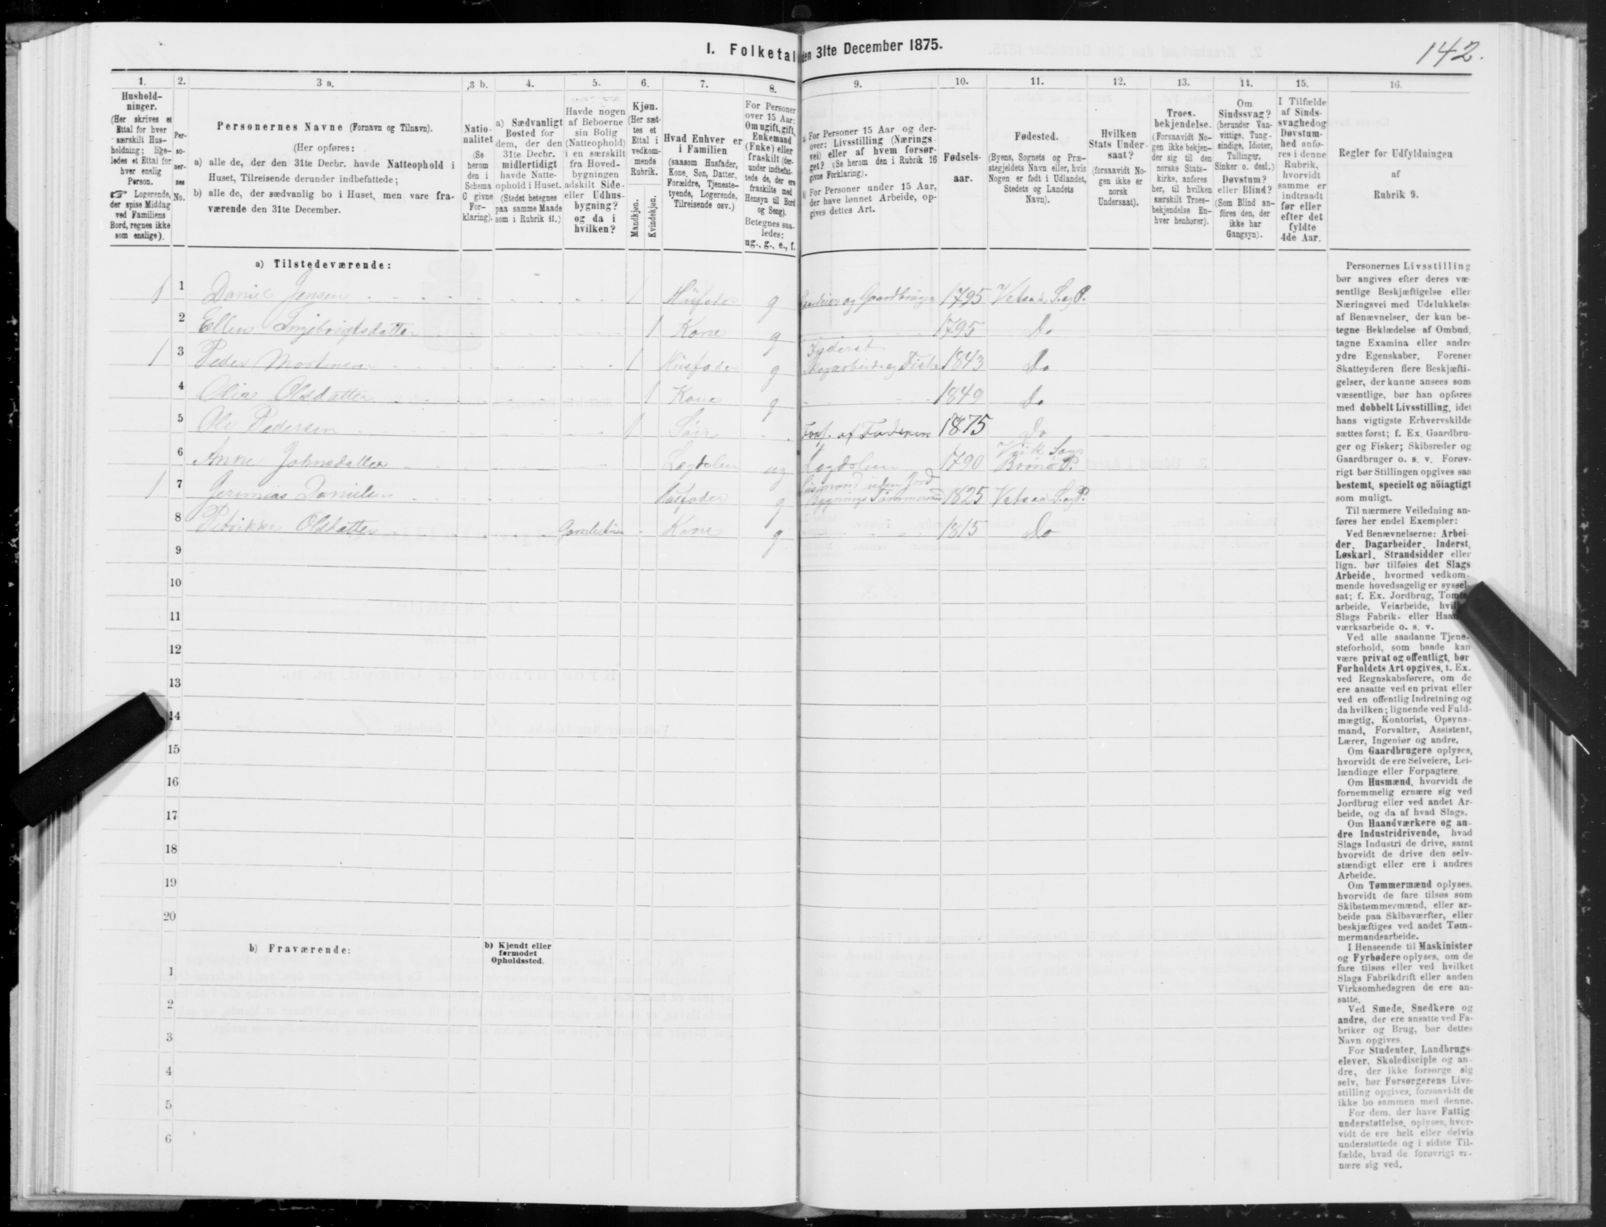 I. Folketal den 31te December 1875.
142.
1.
2.
3 a.
3 b.
4.
5.
6.
7.
8.
9.
10.
11.
12.
13.
14.
15.
16.
Hushold-
ninger.
(Her skrives et
Ettal for hver
særskilt Hus-
holdning; lige-
ledes et Ettal for
hver enslig
Person.
☞ Logerende,
der spise Middag
ved Familiens
Bord, regnes ikke
som enslige).
Per-
so-
ner-
nes
No.
Personernes Navne (Fornavn og Tilnavn).
(Her opføres:
a) alle de, der den 31te Decbr. havde Natteophold i
Huset, Tilreisende derunder indbefattede;
b) alle de, der sædvanlig bo i Huset, men vare fra-
værende den 31te December.
Natio-
nalitet
(Se
herom
den i
Schema
C givne
For-
klaring).
a) Sædvanligt
Bosted for
dem, der den
31te Decbr.
midlertidigt
havde Natte-
ophold i Huset.
(Stedet betegnes
paa samme Maade
som i Rubrik 11.)
Havde nogen
af Beboerne
sin Bolig
(Natteophold)
i en særskilt
fra Hoved-
bygningen
adskilt Side-
eller Udhus-
bygning?
og da i
hvilken?
Kjøn.
(Her sæt-
tes et
Ettal i
vedkom-
mende
Rubrik.
Mandkjøn.
Kvindekjøn.
Hvad Enhver er
i Familien
(saasom Husfader,
Kone, Søn, Datter,
Forældre, Tjeneste-
tyende, Logerende,
Tilreisende osv.)
For Personer
over 15 Aar:
Om ugift, gift,
Enkemand
(Enke) eller
fraskilt (der-
under indbefat-
tede de, der ere
fraskilte med
Hensyn til Bord
og Seng).
Betegnes saa-
ledes:
ug., g., e., f.
a) For Personer 15 Aar og der-
over: Livsstilling (Nærings-
vei) eller af hvem forsør-
get? (Se herom den i Rubrik 16
givne Forklaring).
b) For Personer under 15 Aar,
der have lønnet Arbeide, op-
gives dettes Art.
Fødsels-
aar.
Fødested.
(Byens, Sognets og Præ-
stegjeldets Navn eller, hvis
Nogen er født i Udlandet,
Stedets og Landets
Navn).
Hvilken
Stats Under-
saat?
(forsaavidt No-
gen ikke er
norsk
Undersaat).
Troes-
bekjendelse.
(Forsaavidt No-
gen ikke bekjen-
der sig til den
norske Stats-
kirke, anføres
her, til hvilken
særskilt Troes-
bekjendelse En-
hver henhører).
Om
Sindssvag?
(herunder Van-
vittige, Tung-
sindige, Idioter,
Tullinger,
Sinker o. desl.)
Døvstum?
eller Blind?
(Som Blind an-
føres den, der
ikke har
Gangsyn).
I Tilfælde
af Sinds-
svaghed og
Døvstum-
hed anfø-
res i denne
Rubrik,
hvorvidt
samme er
indtraadt
før eller
efter det
fyldte
4de Aar.
Regler for Udfyldningen
af
Rubrik 9.
a) Tilstedeværende:
1 1 Daniel Jensen 1 Husfader g og Gaardbruger 1795 S. og P.
2 Ellen Ingebrigtsdatter 1 Kone g 1795 Do
1 3 Peder Mortensen 1 Husfader g 1843 Do
4 Olia Olsdatter 1 Kone g 1849 Do
5 Ole Pedersen 1 Søn Fors. af Faderen 1875 Do
6 Anne Johnsdatter Lægdslem ug Lægdslem 1790 Brønø P.
1 7 Jeremias Danielsen Husfader g Husmand uden Jord 1825 S. og P.
8 Olsdatter Kone g 1815 Do
9
10
11
12
13
14
15
16
17
18
19
20
b) Fraværende:
b) Kjendt eller
formodet
Opholdssted.
1
2
3
4
5
6
Personernes Livsstilling
bør angives efter deres væ-
sentlige Beskjæftigelse eller
Næringsvei med Udelukkelse
af Benævnelser, der kun be-
tegne Beklædelse af Ombud,
tagne Examina eller andre
ydre Egenskaber. Forener
Skatteyderen flere Beskjæfti-
gelser, der kunne ansees som
væsentlige, bør han opføres
med dobbelt Livsstilling, idet
hans vigtigste Erhvervskilde
sættes først; f. Ex. Gaardbru-
ger og Fisker; Skibsreder og
Gaardbruger o. s. v. Forøv-
rigt bør Stillingen opgives saa
bestemt, specielt og nøiagtigt
som muligt.
Til nærmere Veiledning an-
føres her endel Exempler:
Ved Benævnelserne: Arbei-
der, Dagarbeider, Inderst,
Løskarl, Strandsidder eller
lign. bør tilføies det Slags
Arbeide, hvormed vedkom-
mende hovedsagelig er syssel-
sat; f. Ex. Jordbrug, Tomte-
arbeide, Veiarbeide, hvilket
Slags Fabrik- eller Haand-
værksarbeide o. s. v.
Ved alle saadanne Tjene-
steforhold, som baade kan
være privat og offentligt, bør
Forholdets Art opgives, t. Ex.
ved Regnskabsførere, om de
ere ansatte ved en privat eller
ved en offentlig Indretning og
da hvilken; lignende ved Fuld-
mægtig, Kontorist, Opsyns-
mand, Forvalter, Assistent,
Lærer, Ingeniør og andre.
Om Gaardbrugere oplyses,
hvorvidt de ere Selveiere, Lei-
lændinge eller Forpagtere.
Om Husmænd, hvorvidt de
fornemmelig ernære sig ved
Jordbrug eller ved andet Ar-
beide, og da af hvad Slags.
Om Haandværkere og an-
dre Industridrivende, hvad
Slags Industri de drive, samt
hvorvidt de drive den selv-
stændigt eller ere i andres
Arbeide.
Om Tømmermænd oplyses,
hvorvidt de fare tilsøs som
Skibstømmermænd, eller ar-
beide paa Skibsværfter, eller
beskjæftiges ved andet Tøm-
mermandsarbeide.
I Henseende til Maskinister
og Fyrbødere oplyses, om de
fare tilsøs eller ved hvilket
Slags Fabrikdrift eller anden
Virksomhedsgren de ere an-
satte.
Ved Smede, Snedkere og
andre, der ere ansatte ved Fa-
briker og Brug, bør dettes
Navn opgives.
For Studenter, Landbrugs-
elever, Skoledisciple og an-
dre, der ikke forsørge sig
selv, bør Forsørgerens Livs-
stilling opgives, forsaavidt de
ikke bo sammen med denne.
For dem, der have Fattig-
understøttelse, oplyses, hvor-
vidt de ere helt eller delvis
understøttede og i sidste Til-
fælde, hvad de forøvrigt er-
nære sig ved.